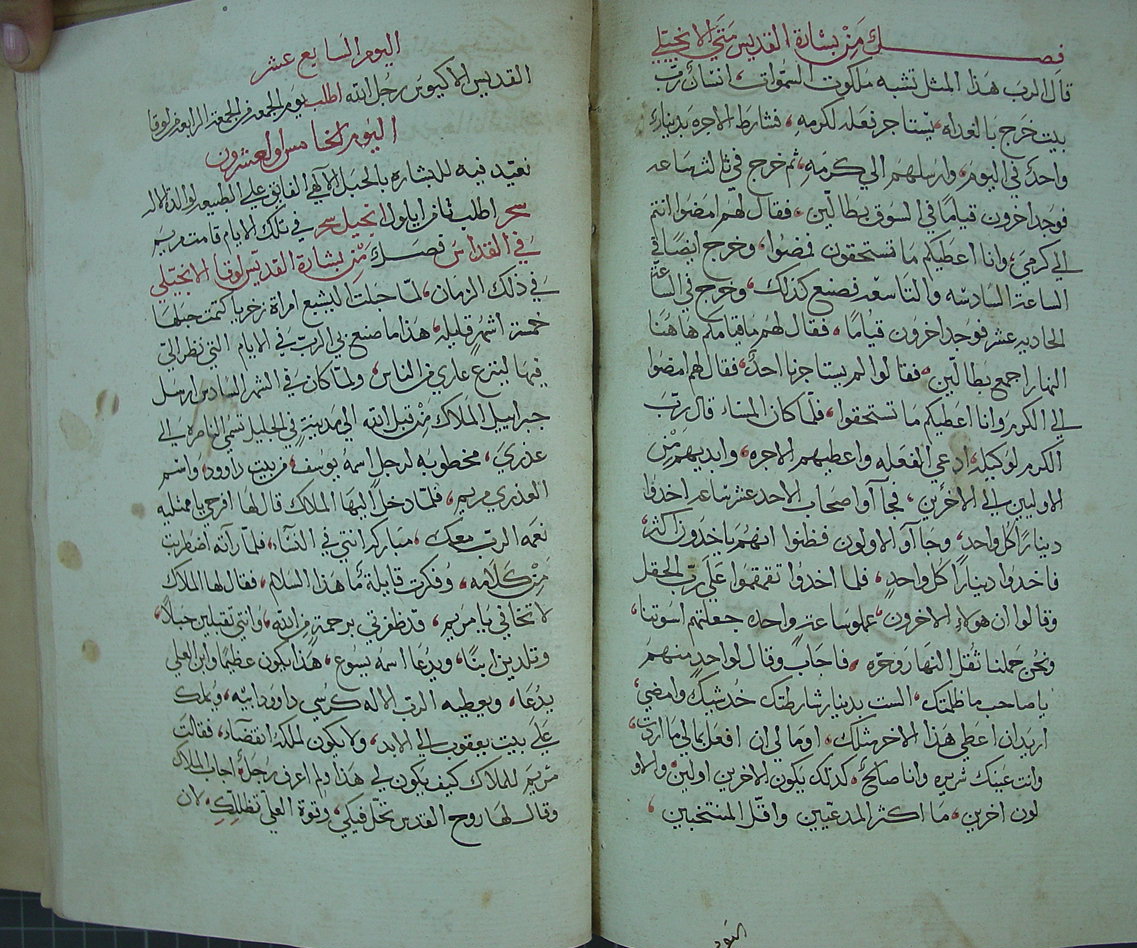 فصل من بشارة القديس متي الانجيلي
قال الرب هذا المثل تشبه ملكوت السموات، انسان رب
بيت خرج بالغداه يستاجر فعله لكرمه، فشارط الاجره بدينار
واحد في اليوم، وارسلهم الي كرمه، ثم خرج في ثالث ساعه
فوجد اخرون قياما في السوق بطالين، فقال لهم امضوا انتم
الي كرمي، وانا اعطيكم ما تستحقون فمضوا، وخرج ايضا في
الساعة السادسه والتاسعه فصنع كذلك، وخرج في الساعة
الحاديه عشر فوجد اخرون قياما، فقال لهم ما قيامكم هاهنا
النهار اجمع بطالين، فقالوا لم يستاجرنا احد، فقال لهم امضوا
الي الكرم وانا اعطيكم ما تستحقوا، فلما كان المساء قال رب
الكرم لوكيله، ادعي الفعله واعطيهم الاجره، وابديهم من
الاولين الي الاخرين، فجآاوا صحاب الاحد عشر ساعه اخدوا
دينارا كل واحد، وجاآو الاولون فظنوا انهم ياخدون اكثر،
فاخدوا دينارا كل واحد، فلما اخدوا تقمقموا علي رب الحقل
وقالوا ان هولاء الاخرون عملوا ساعه واحده جعلتهم اسوتنا،
ونحن حملنا ثقل النهار وحره، فاجاب وقال لواحد منهم
يا صاحب ما ظلمتك، الست بدينار شارطتك خد شيك وامضي،
اريد ان اعطي هذا الاخر مثلك، اوما لي ان افعل بمالي ما اردت،
وانت عينك شريره وانا صالح، كدلك يكون الاخرين اولين، والاو
لون اخرين، ما اكثر المدعيين واقل المنتخبين،
اليوم السابع عشر
القديس الاكيوس رجل الله اطلب يوم الجمعه من الجمعة الرابعه من لوقا
اليوم الخامس والعشرون
نعيد فيه للبشاره بالحبل الالهي الفايق علي الطبيعه لوالدة الاله
سحر اطلب في ايلول انجيل سحر في تلك الايام قامت مريم
في القداس فصل من بشارة القديس لوقا الانجيلي
في ذلك الزمان، لما حبلت اليشبع امراة زخريا كتمت حبلها
خمسة اشهر قايله، هذا ما صنع بي الرب في الايام التي نظر الي
فيها لينزع عاري من الناس، ولما كان في الشهر السادس ارسل
جبراييل الملاك من قبل الله الي مدينة في الجليل تسمي الناصره الي
عذري، مخطوبه لرجل اسمه يوسف، من بيت داوود، واسم
العذري مريم، فلما دخل اليها الملاك قال لها افرحي يا ممتليه
نعمه الرب معك، مباركه انتي في النساء، فلما رآته اضطربت
من كلامه، وفكرت قايلة، ما هذا السلام، فقال لها الملاك
لا تخافي يا مريم، قد ظفرتي برحمة من الله، وانتي تقبلين حبلا،
وتلدين ابنا، ويدعا اسمه يسوع، هذا يكون عظيما وابن العلي
يدعا، ويعطيه الرب الاله كرسي داوود ابيه، ويملك
علي بيت يعقوب الي الابد، ولا يكون لملكه انقضاء، فقالت
مريم للملاك كيف يكون لي هذا ولم اعرف رجل، اجاب الملاك
وقال لها روح القدس تحل فيكي، وقوة العلي تظللك، لان